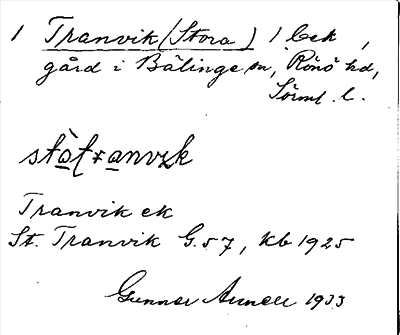 1 Tranvik (Stora) 1/6 ek,
gård i Bälinge sn, Rönö hd,
Sörml. l.
Tranvik ek
St. Tranvik G. 57, kb 1925
Gunnar 1933